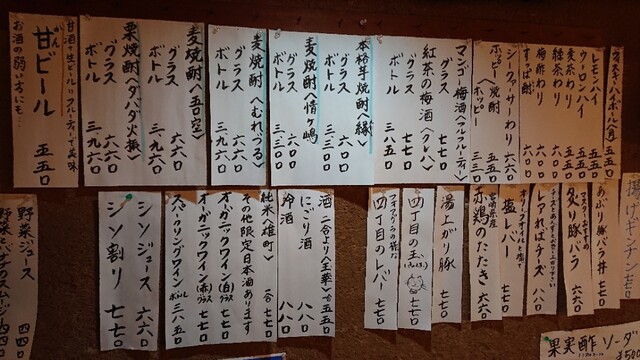 ウィスキーハイボール(角) 五五〇
レモンハイ 五五〇
ウーロンハイ 五五〇
麦茶わり 五五〇
緑茶わり 五五〇
梅酢わり 六六〇
すっぱ酎 六六〇
シークァーサーわり 六六〇
焼酎
ホッピー 五五〇
マンゴー梅酒〈マルフルーティ〉
グラス 七七〇
紅茶の梅酒〈クレハ〉
グラス 七七〇
ボトル 三八五〇
本格芋焼酎〈縁〉
グラス 六六〇
ボトル 三三〇〇
麦焼酎〈情け嶋〉
グラス 六〇〇
ボトル 三三〇〇
麦焼酎〈むれづる〉
グラス 六六〇
ボトル 三九六〇
麦焼酎〈五口空〉
グラス 六六〇
ボトル 三九六〇
栗焼酎〈ダバダ火振〉
グラス 六六〇
ボトル 三九六〇
甘酒+生ビール!!フルーティーで美味
甘ビール 五五〇
お酒の弱い方にも…
揚げギンナン 七七〇
あぶり豚バラ丼 七七〇
炙り豚バラ 七七〇
レアればチーズ 八八〇
オリーブオイルと塩で
塩レバー 七七〇
宮崎県産
赤鶏のたたき 六六〇
湯上がり豚 七七〇
四丁目の玉 七七〇
フォアグラの様な
四丁目のレバー 七七〇
酒 二合より〈王華〉一合 五五〇
にごり酒 八八〇
冷酒 八八〇
純米〈雄町〉 一合 七七〇
その他限定日本酒あります
オーガニックワイン(白)グラス 七七〇
オーガニックワイン(赤)グラス 七七〇
スパークリングワイン ボトル 三八五〇
シソジュース 六六〇
シソ割り 七七〇
野菜ジュース 四四〇
果実酢ソーダ